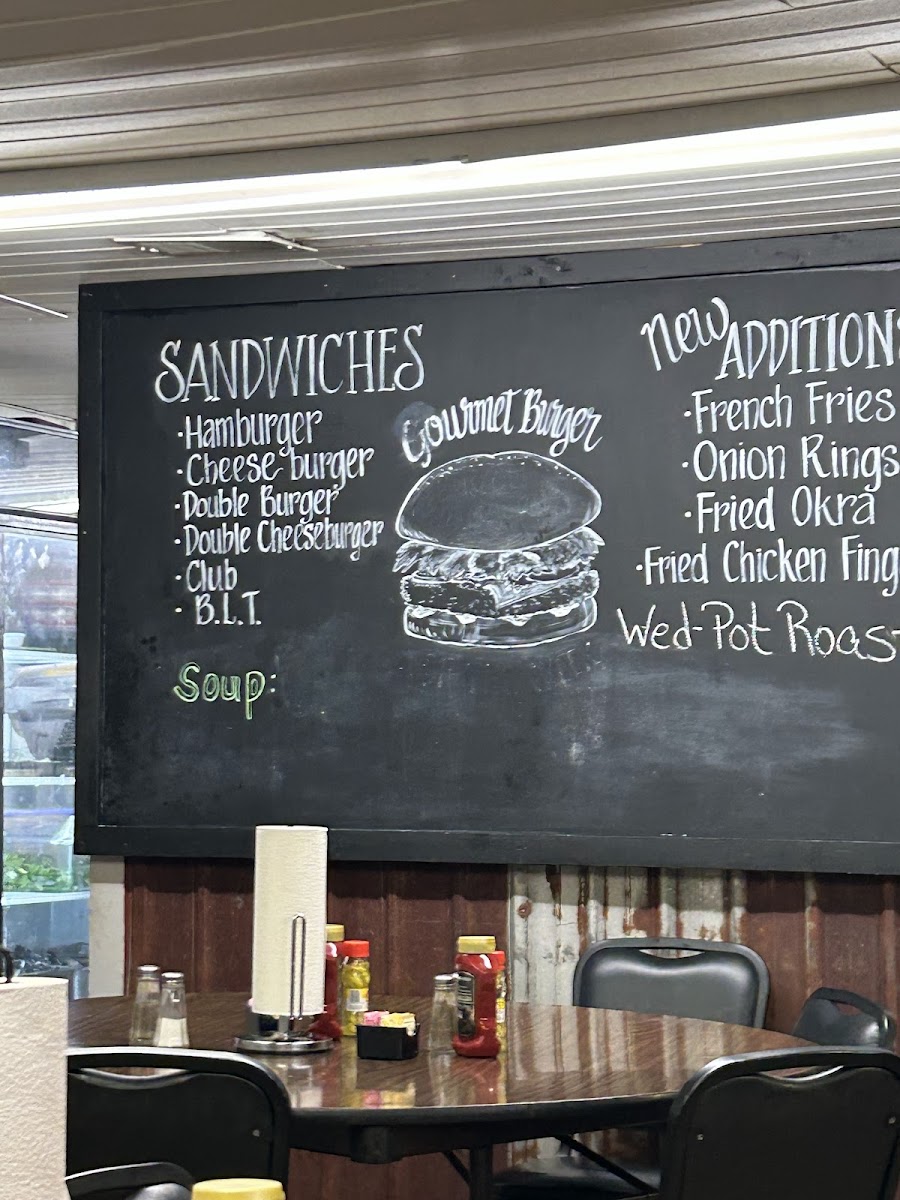 SANDWICHES
·Hamburger
·Cheese-burger
·Double Burger
·Double Cheeseburger
·Club
·B.L.T.
Soup:
Gourmet Burger
New ADDITIONS
·French Fries
·Onion Rings
·Fried Okra
·Fried Chicken Fing
Wed-Pot Roast